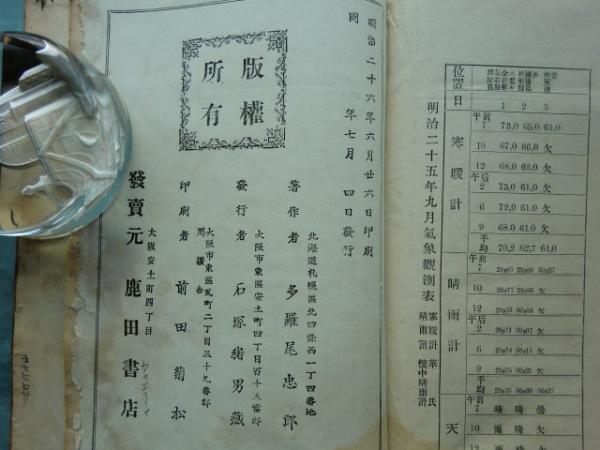 位置
日 1 2 3
午前
7 73,0 65,0 61,0
10 67,0 66,0 欠
12 68,0 62,0 欠
午后
2 73,0 61,0 欠
6 72,0 61,0 欠
9 68.0 61.0 欠
平均 70,2 62,7 61,0
寒暖計
午前
7
10
12
午后
2
6
9
平均
晴雨計
7 晴 晴 曇
10 雨 晴 欠
天
明治二十五年九月氣象觀測表
寒暖計 華氏
晴雨計 懷中晴雨計
明治二十六年六月廿六日印刷
同 年七月 四日發行
版權
所有
北海道札幌區北四條西一丁四番地
著作者 多羅尾忠郎
大阪市東區安土町四丁目百十五番邸
發行者 石塚猪男藏
大阪市東區瓦町二丁目三十九番邸
印刷者 前田菊松
大阪安土町四丁目
發賣元 鹿田書店